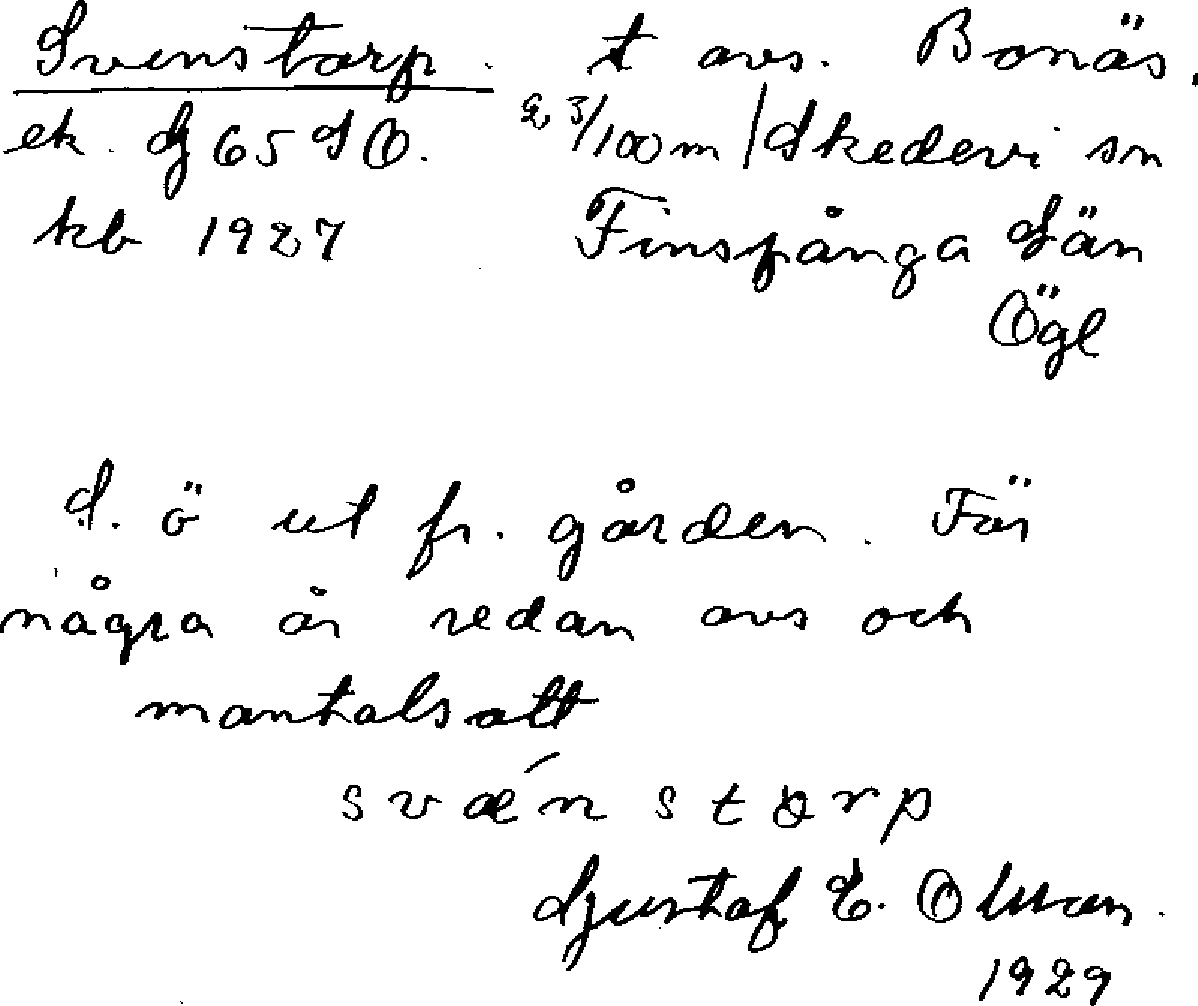 Svenstorp. t avs. Bonäs,
ek. Gj 65 SO. 3/100 m / Skedevi sn
kb 1927 Finspånga Län
Ögl
S. ö ut fr. gården. För
några år sedan avs och
mantalsatt
svæ´nstorp
Gustaf E. Olsson.
1929